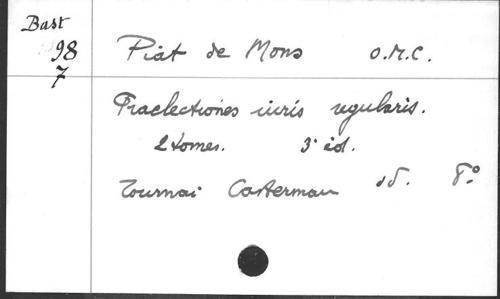 Bast
98
7
Piat de Mons O.M.C.
Praelectiones iuris regularis.
2 tomes. 3e éd.
Tournai Casterman sd. 8°